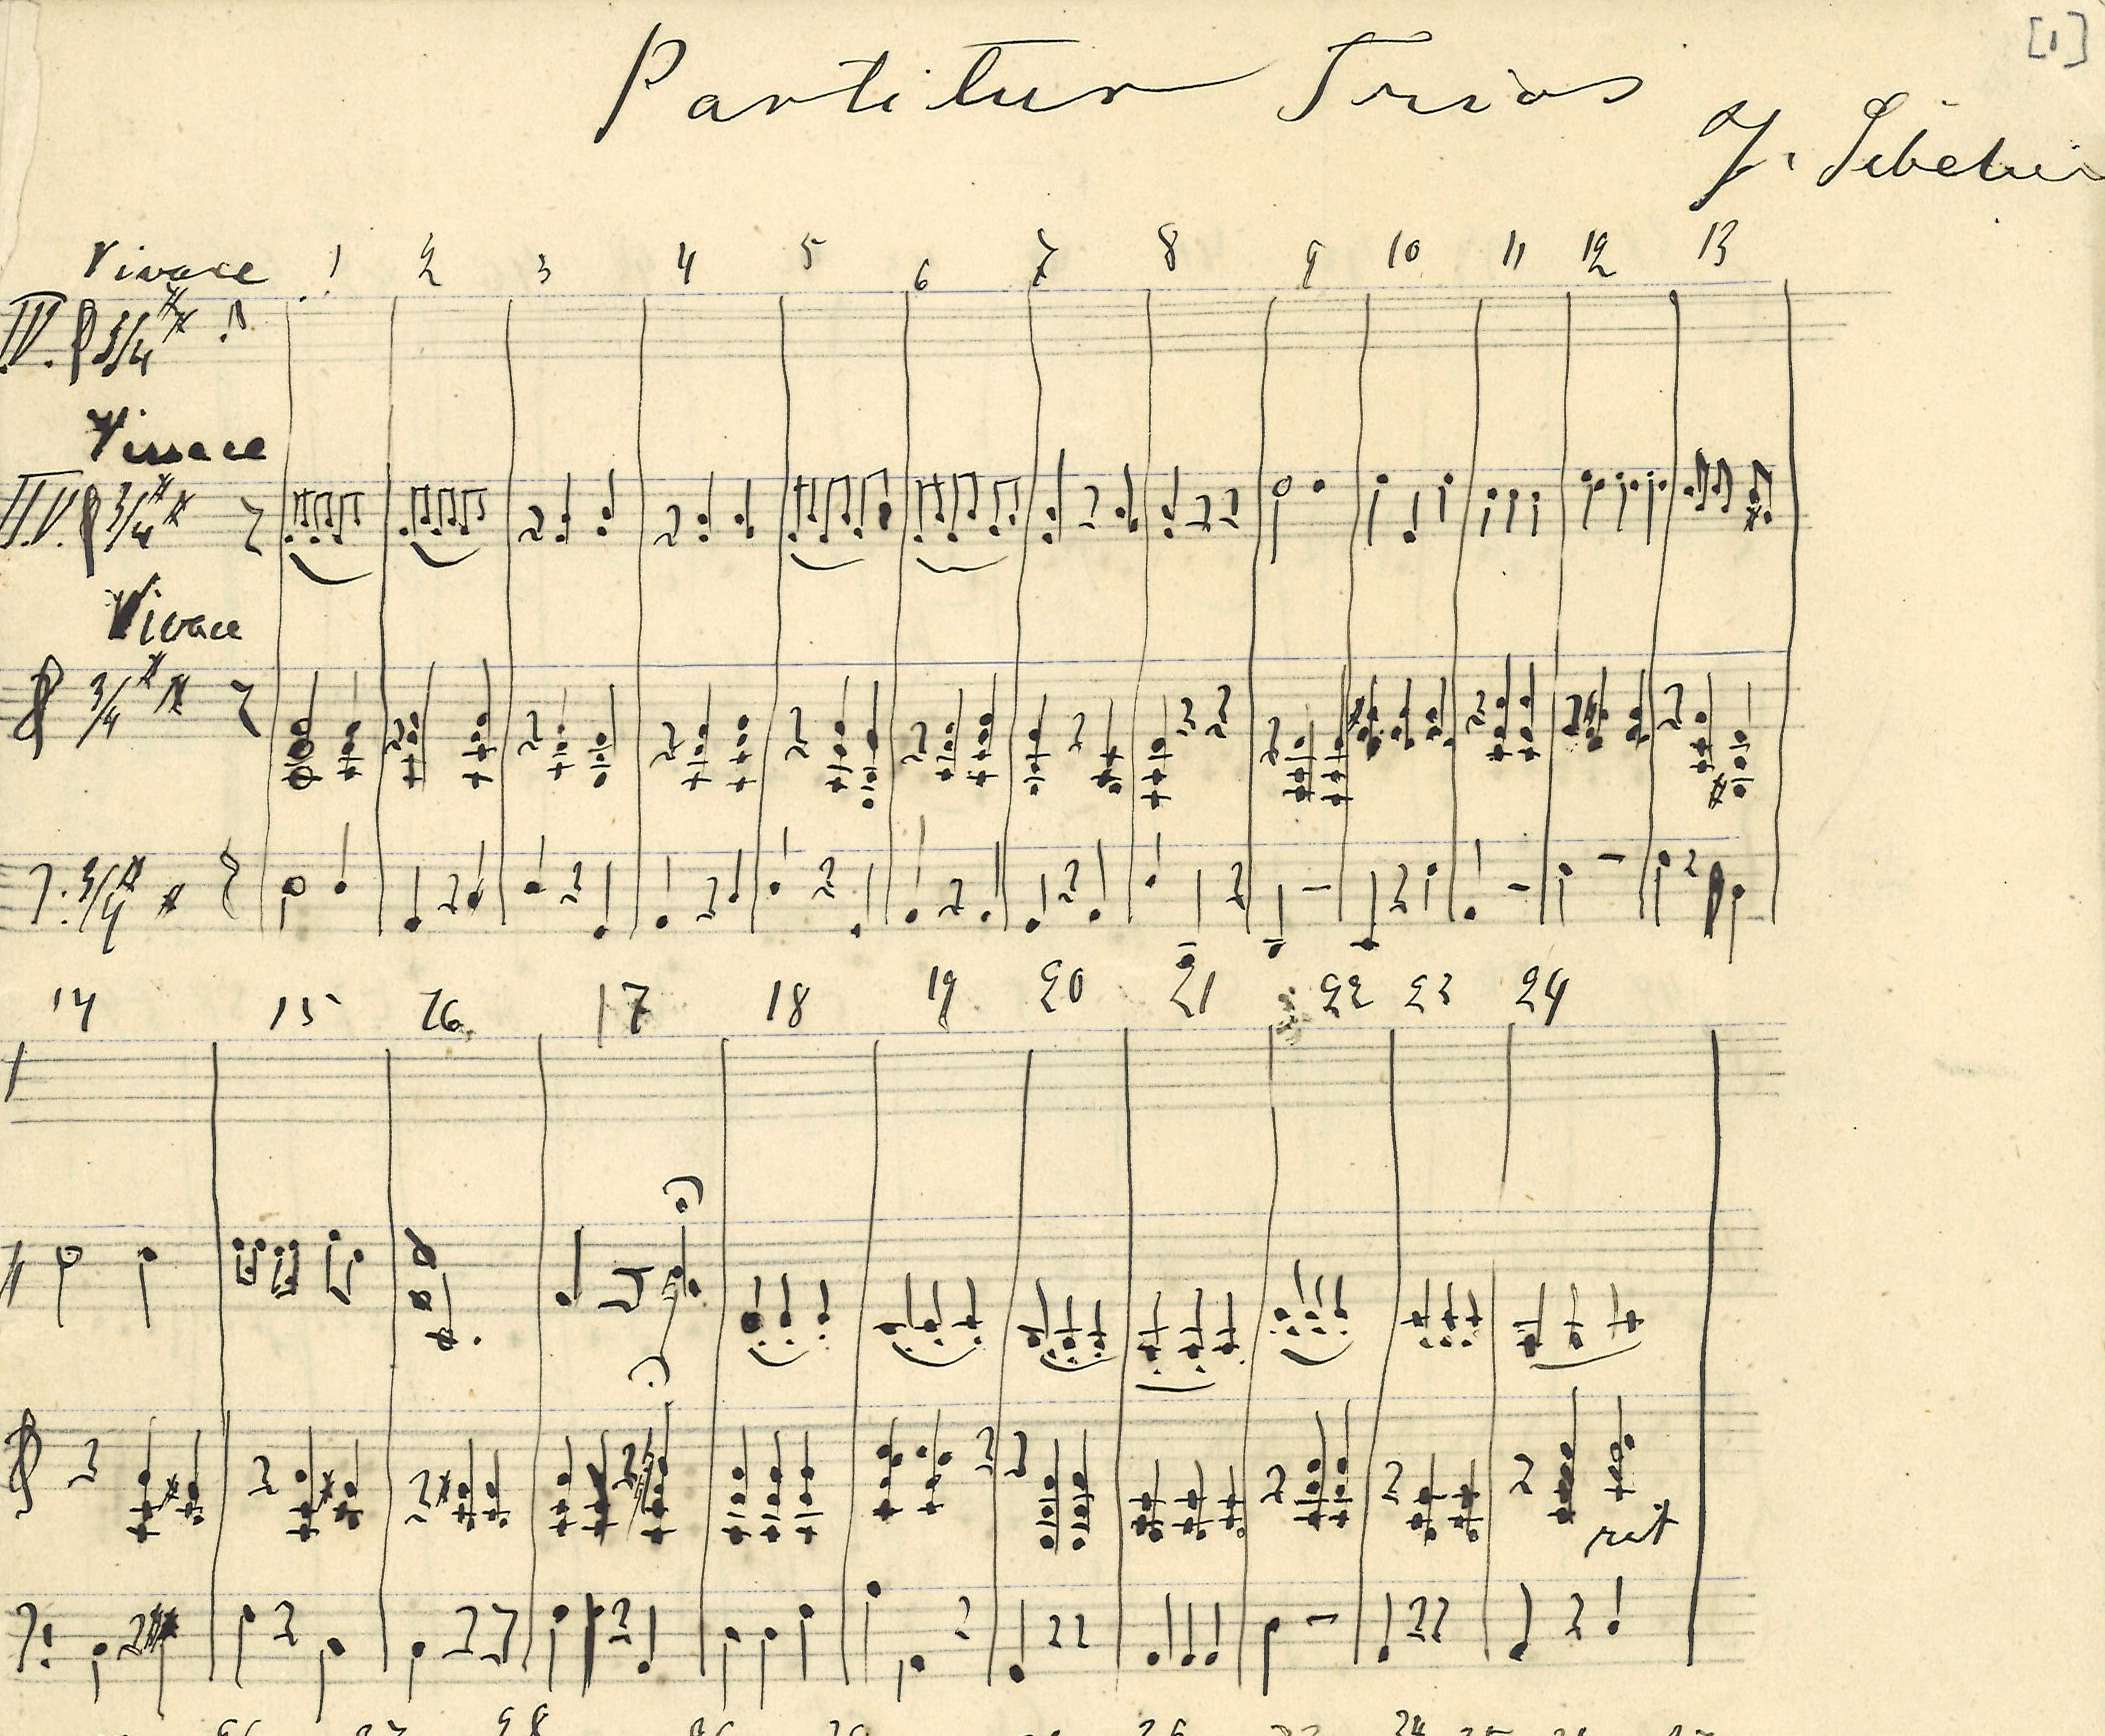 [1]
Partitur Trios
J. Sibeliu
Vivace 1 2 3 4 5 6 7 8 9 10 11 12 13
IV. 3/4
Vivace
IV. 3/4
Vivace
3/4
3/4
14 15 16 17 18 19 20 21 22 23 24
rit